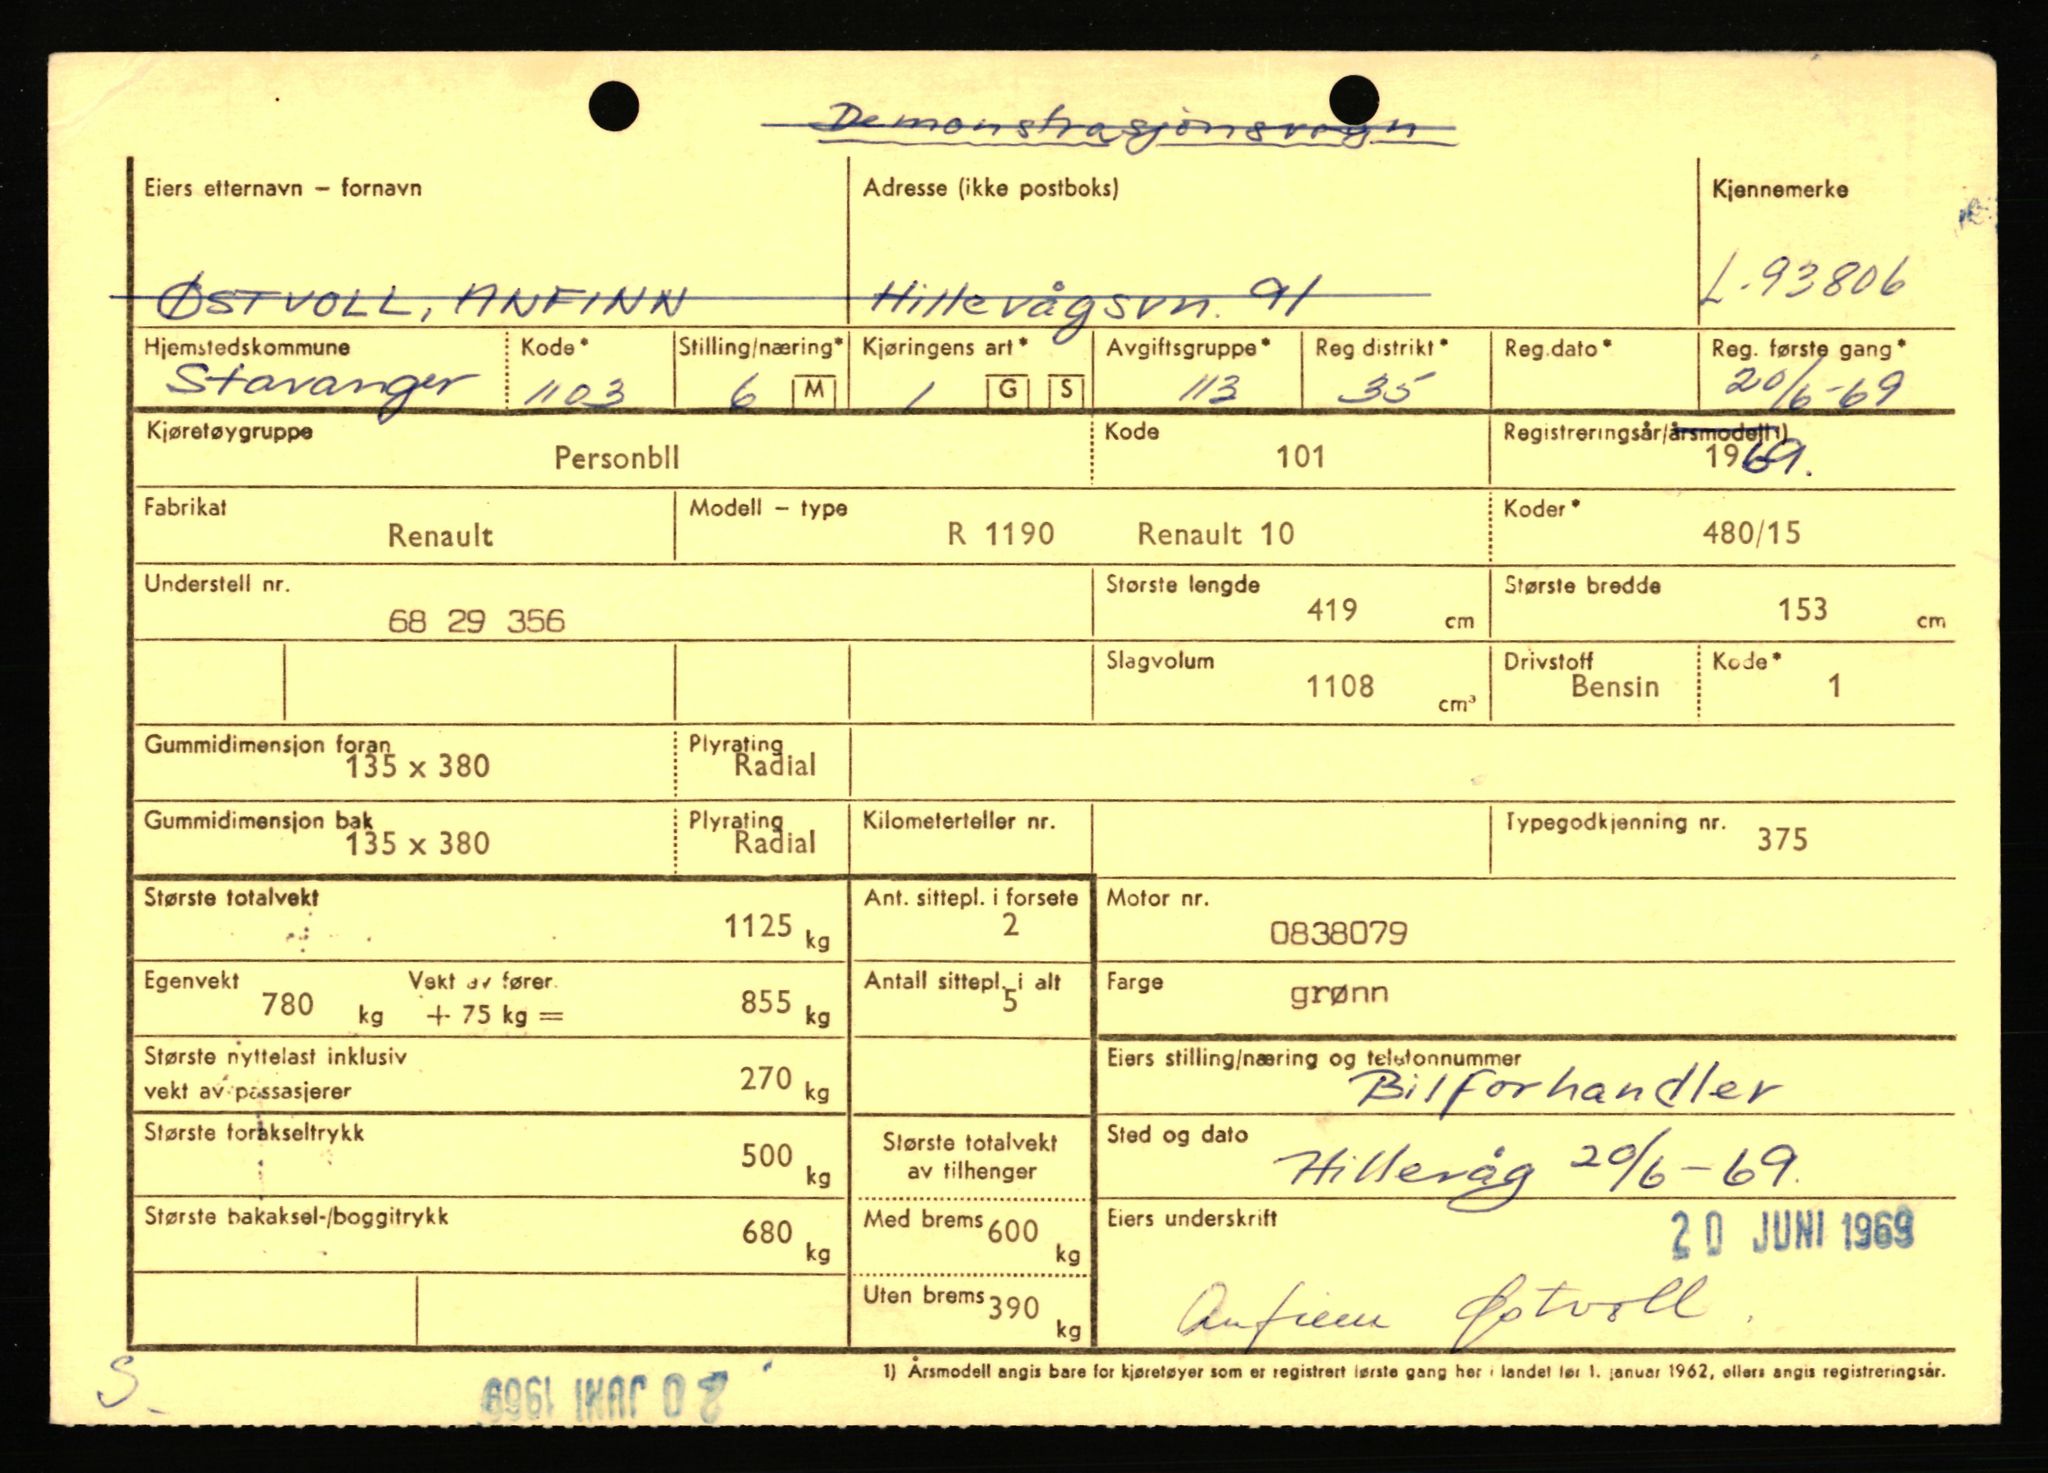 Demonstrasjonsvogn
Eiers etternavn – fornavn Adresse (ikke postboks) Kjennemerke
ØSTVOLL, ANFINN Hillevågsvn. 91 L-93806
Hjemstedskommune Kode* Stilling/næring* Kjøringens art* Avgiftsgruppe* Reg distrikt* Reg.dato* Reg. første gang*
Stavanger 1103 6 M 1 G S 113 35 20/6-69
Kjøretøygruppe Kode Registreringsår/årsmodell 1)
Personbil 101 1969.
Fabrikat Modell – type Koder*
Renault R 1190 Renault 10 480/15
Understell nr. Største lengde Største bredde
68 29 356 419 cm 153 cm
Slagvolum Drivstoff Kode*
1108 cm³ Bensin 1
Gummidimensjon foran Plyrating
135 x 380 Radial
Gummidimensjon bak Plyrating Kilometerteller nr. Typegodkjenning nr.
135 x 380 Radial 375
Største totalvekt Ant. sittepl. i forsete Motor nr.
1125 kg 2 0838079
Egenvekt Vekt av fører. Antall sittepl. i alt Farge
780 kg + 75 kg = 855 kg 5 grønn
Største nyttelast inklusiv Eiers stilling/næring og telefonnummer
vekt av passasjerer 270 kg Bilforhandler
Største forakseltrykk Største totalvekt Sted og dato
500 kg av tilhenger Hillevåg 20/6-69.
Største bakaksel-/boggitrykk Med brems Eiers underskrift
680 kg 600 kg 20 JUNI 1969
Uten brems 390 kg Anfinn Østvoll.
1) Årsmodell angis bare for kjøretøyer som er registrert første gang her i landet før 1. januar 1962, ellers angis registreringsår.
S.
20 JUNI 1969